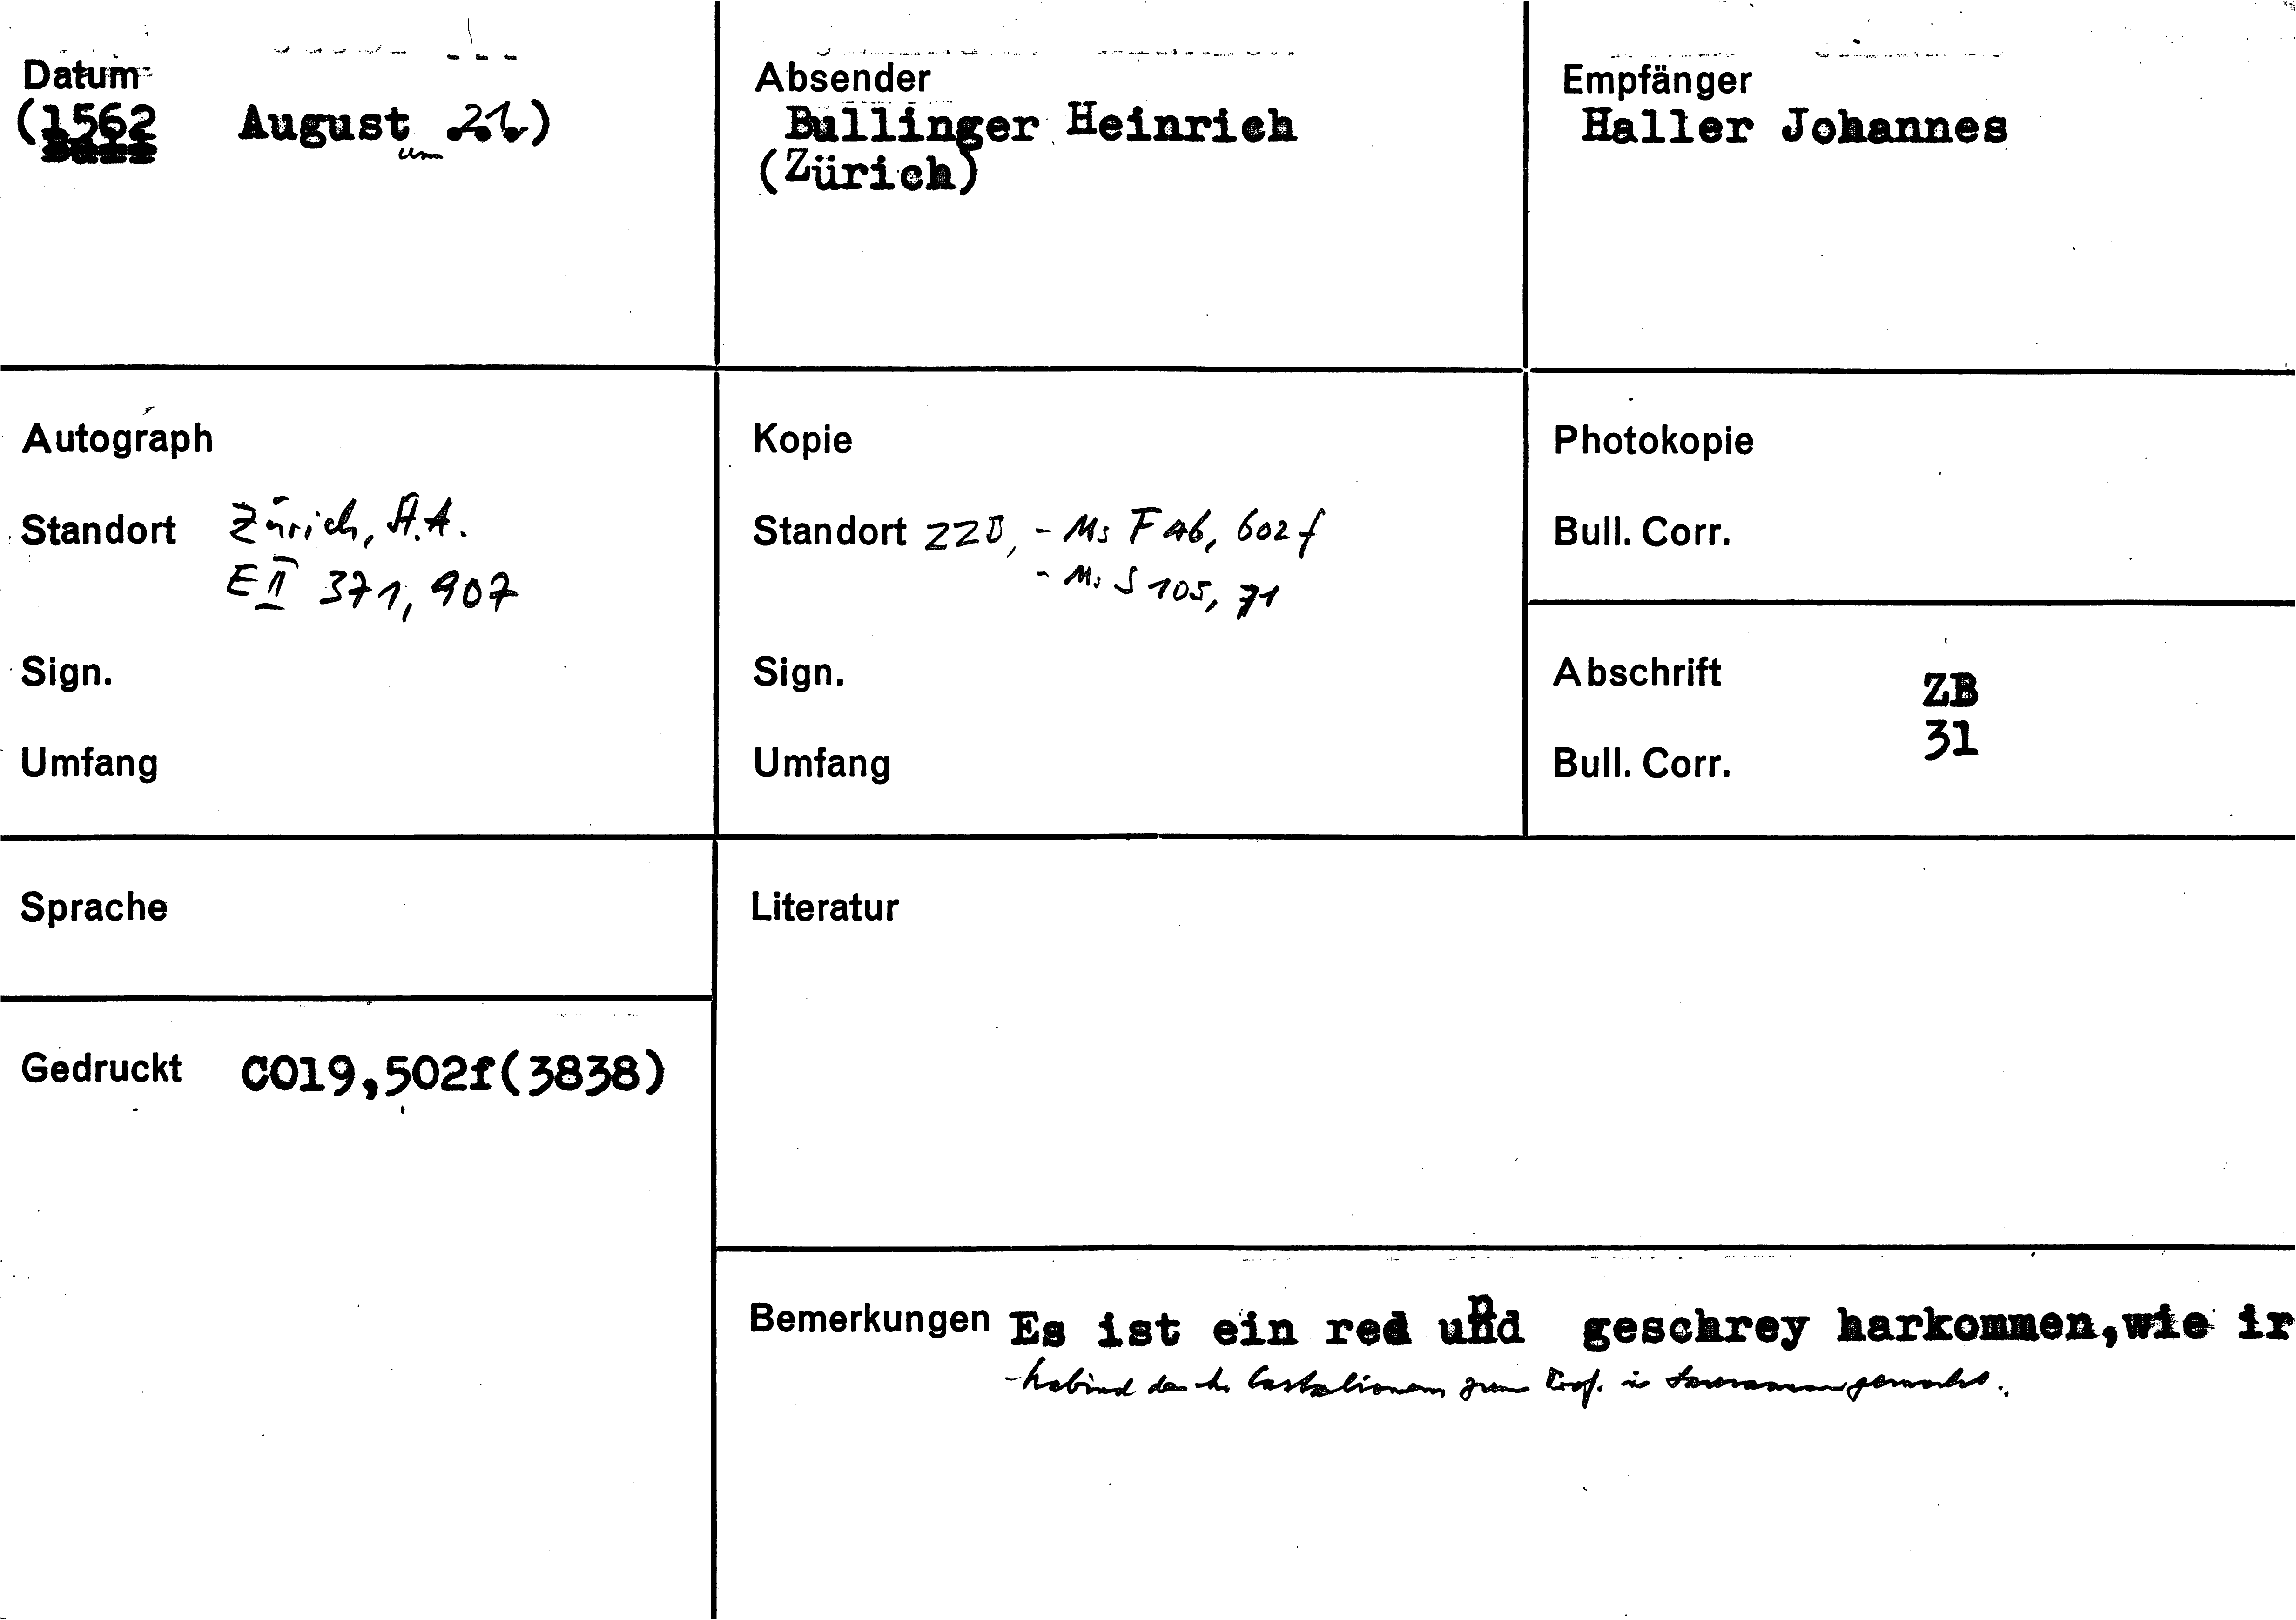 Datum
(1562 August um 21.)
Absender
Bullinger Heinrich
(Zürich)
Empfänger
Haller Johannes
Autograph
Standort Zürich, StA.
E II 371, 907
Sign.
Umfang
Kopie
Standort ZZB, - Ms F 46, 602 f
- Ms S 105, 71
Sign.
Umfang
Photokopie
Bull. Corr.
Abschrift ZB
31
Bull. Corr.
Sprache
Literatur
Gedruckt CO19,502f(3838)
Bemerkungen Es ist ein red und geschrey harkommen,wie ir
habind den Castalionem zum Prof. in gemacht.